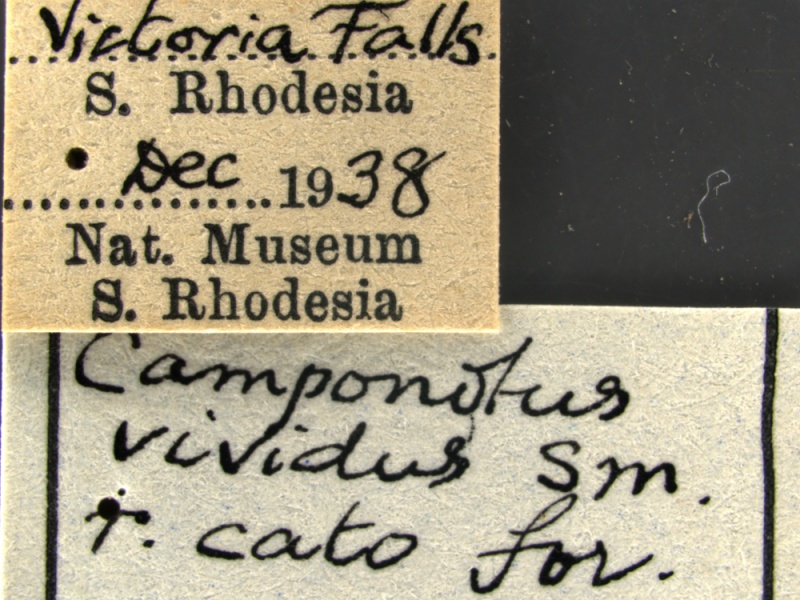 Victoria Falls.
S. Rhodesia
Dec 1938
Nat. Museum
S. Rhodesia
Camponotus
vividus Sm.
r. cato for.